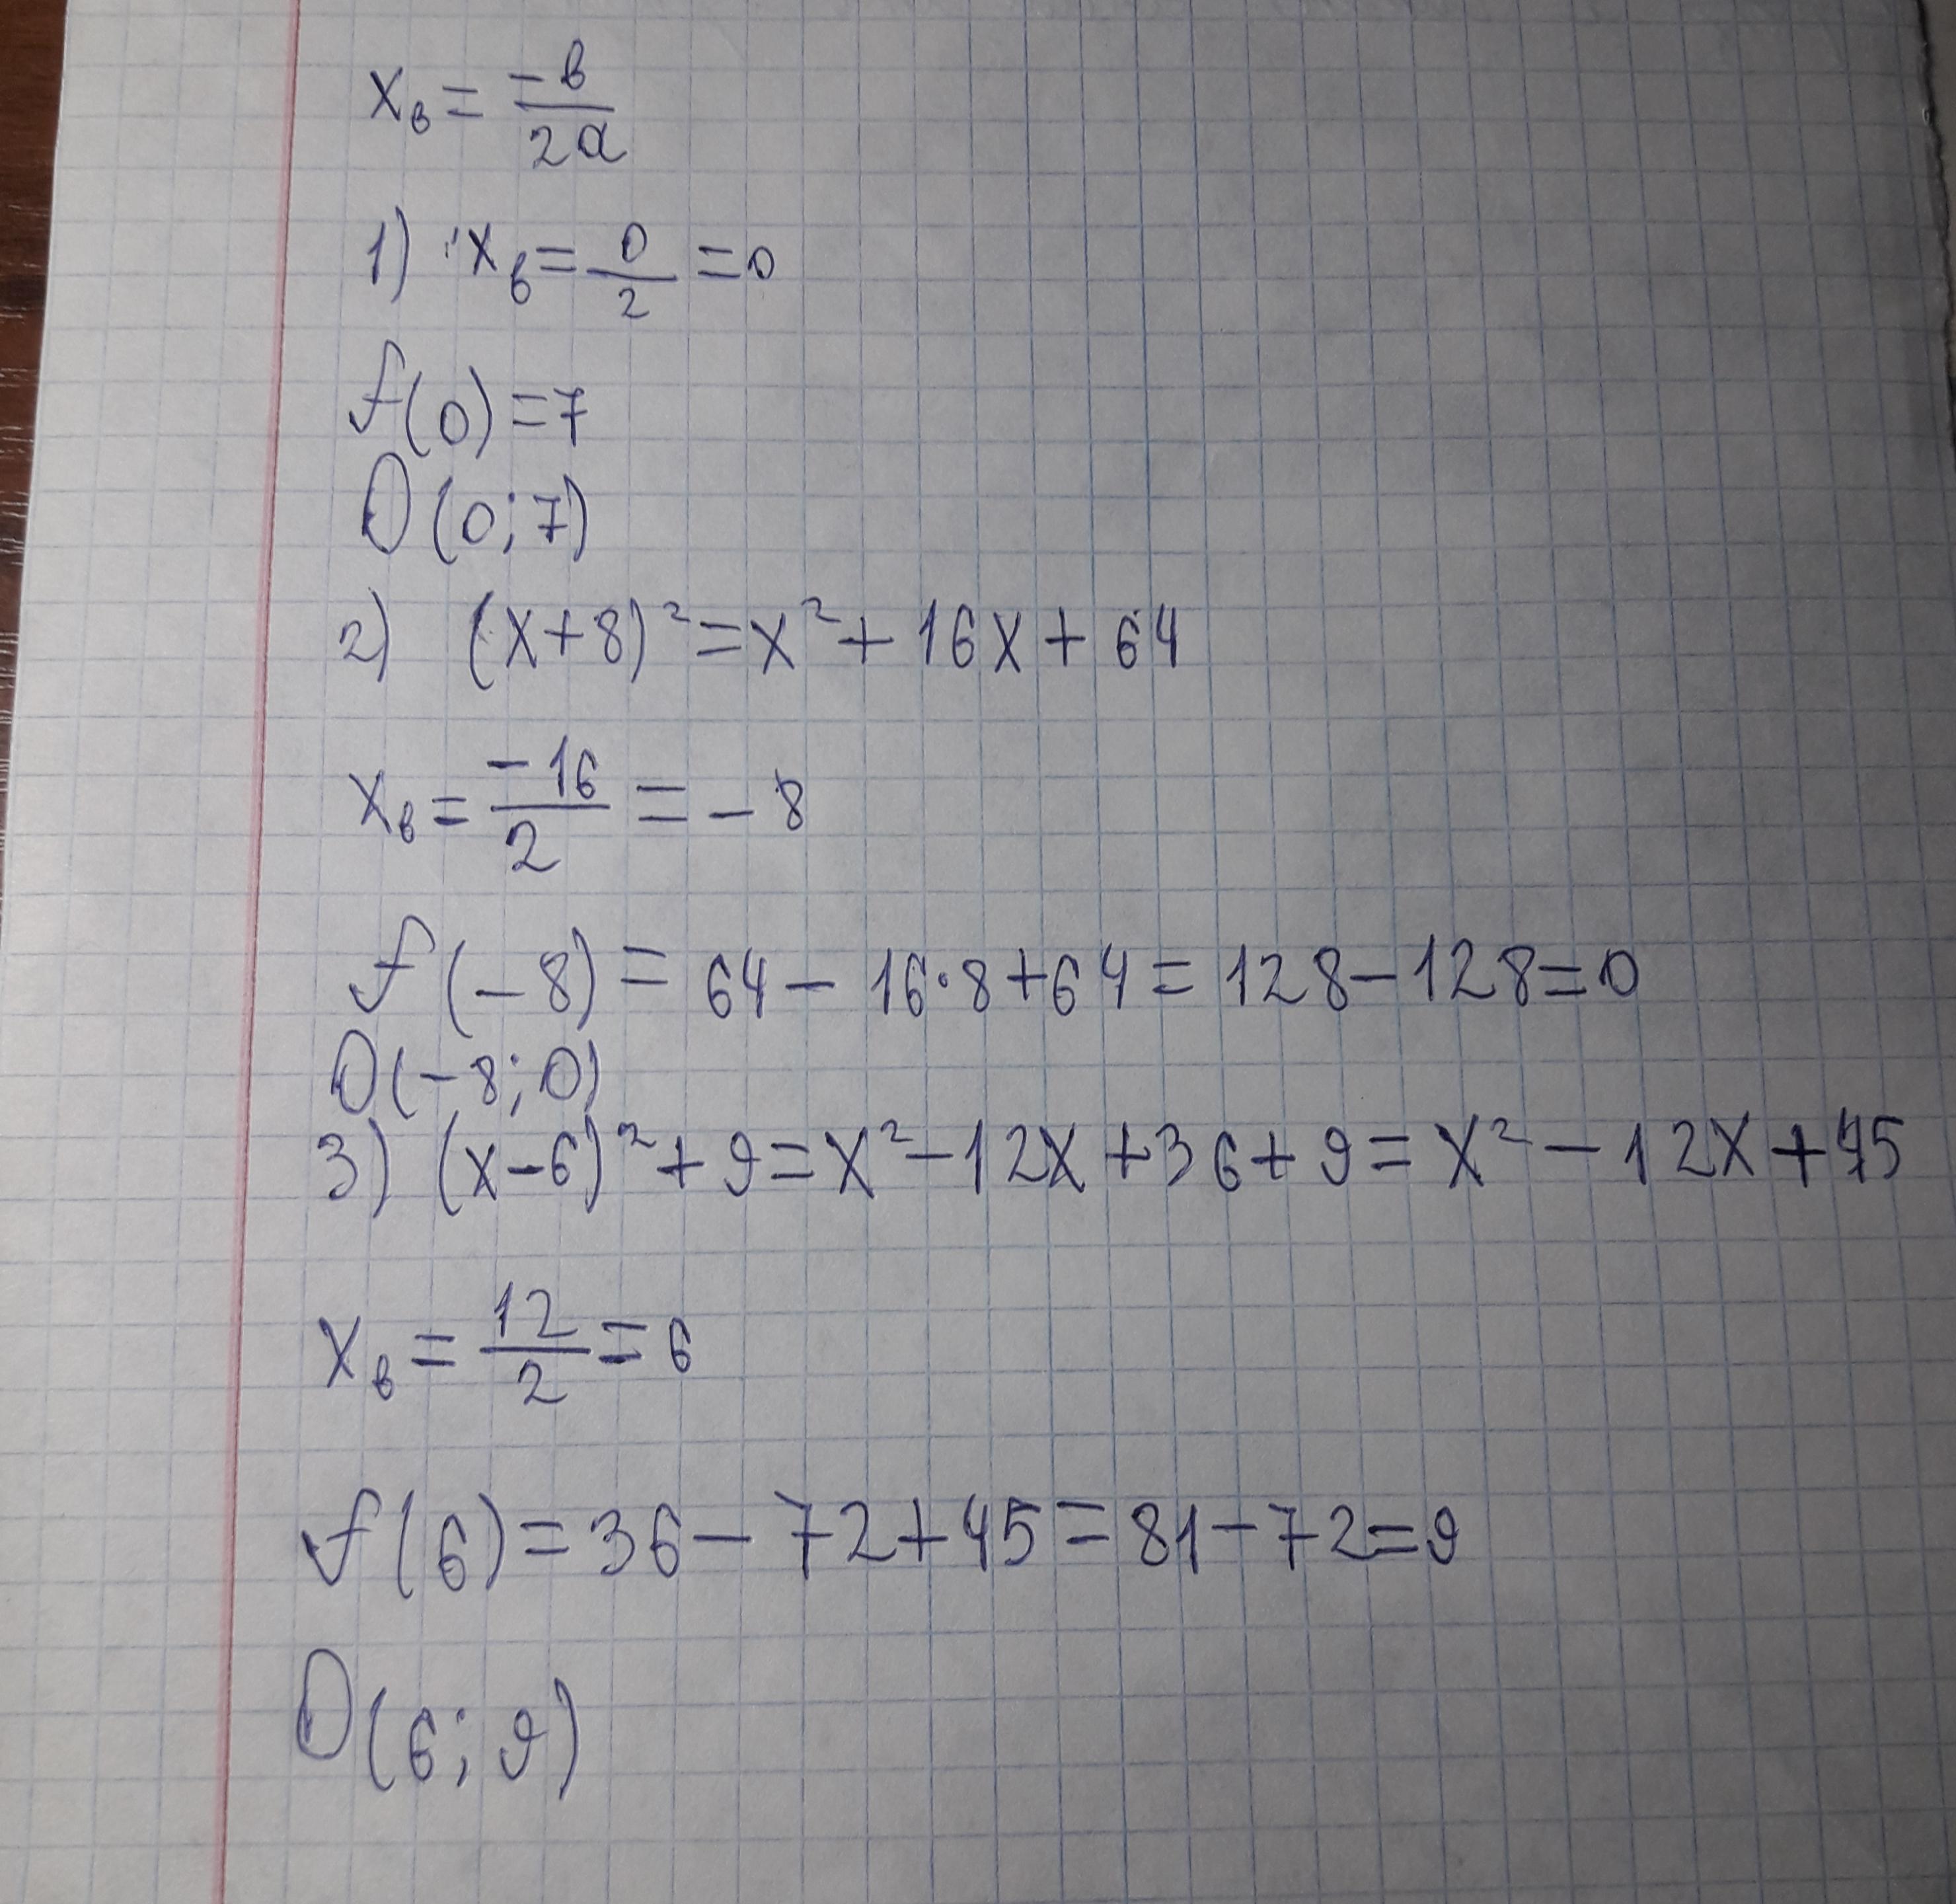 x_в = -в/2a
1) x_в = 0/2 = 0
f(0) = 7
O(0; 7)
2) (x+8)² = x² + 16x + 64
x_в = -16/2 = -8
f(-8) = 64 - 16·8 + 64 = 128 - 128 = 0
O(-8; 0)
3) (x-6)² + 9 = x² - 12x + 36 + 9 = x² - 12x + 45
x_в = 12/2 = 6
f(6) = 36 - 72 + 45 = 81 - 72 = 9
O(6; 9)